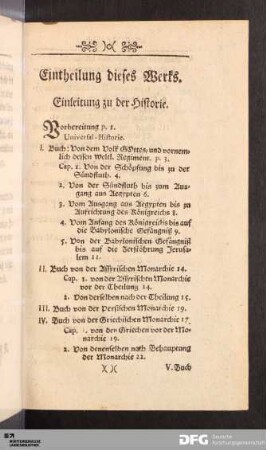 Eintheilung dieses Werks.
Einleitung zu der Historie.
Vorbereitung p. 1.
Universal-Historie.
I. Buch: Von dem Volk GOttes, und vornem-
lich dessen Weltl. Regiment. p. 3.
Cap. 1. Von der Schöpfung bis zu der
Sündfluth. 4.
2. Von der Sündfluth bis zum Aus-
gang aus Aegypten 6.
3. Vom Ausgang aus Aegypten bis zu
Aufrichtung des Königreichs 8.
4. Vom Anfang des Königreichs bis auf
die Babylonische Gefängniß 9.
5. Von der Babylonischen Gefängniß
bis auf die Zerstöhrung Jerusa-
lem 11.
II. Buch von der Assyrischen Monarchie 14.
Cap. 1. von der Assyrischen Monarchie
vor der Theilung 14.
2. Von derselben nach der Theilung 15.
III. Buch von der Persischen Monarchie
IV. Buch von der Griechischen Monarchie 17.
Cap. 1. von der Griechen vor der Mo-
narchie 19.
2. Von denenselben nach Behauptung
der Monarchie 22.
)( )( V. Buch
DFG
Deutsche
Forschungsgemeinschaft